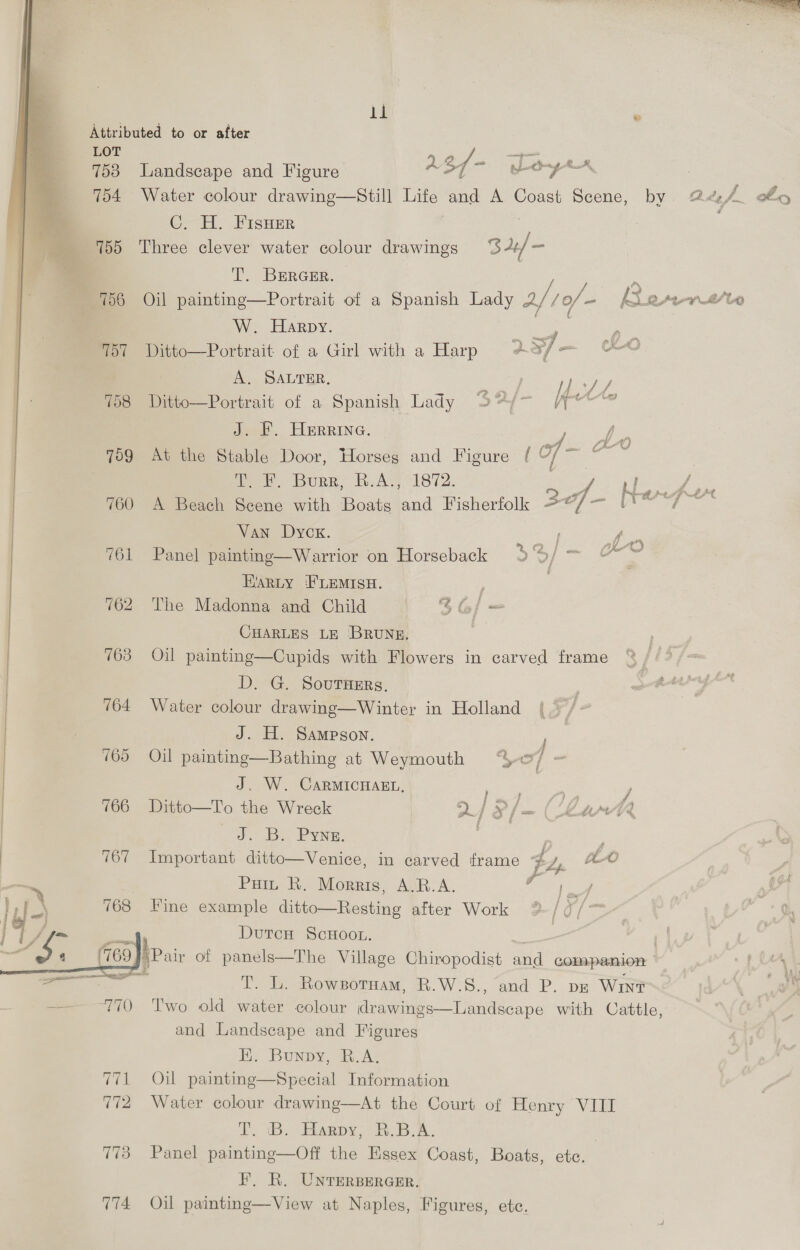 11
Attributed to or after
LOT
753 Landscape and Figure 23/-
754 Water colour drawing—Still Life and A Coast Scene, by
C. H. FISHER
755 Three clever water colour drawings 34/-
T. BERGER.
756 Oil painting—Portrait of a Spanish Lady 2/10/-
W. HARDY.
757 Ditto—Portrait of a Girl with a Harp 28/- do
A. SALTER.
758 Ditto—Portrait of a Spanish Lady 32/-
J. F. HERRING.
759 At the Stable Door, Horses and Figure 10/- do
T. F. BURR, R.A., 1872.
760 A Beach Scene with Boats and Fisherfolk 30/- Harper
VAN DYCK.
761 Panel painting—Warrior on Horseback do
EARLY FLEMISH.
762 The Madonna and Child 36/-
CHARLES LE BRUNE.
763 Oil painting—Cupids with Flowers in carved frame
D. G. SOUTHERS.
764 Water colour drawing—Winter in Holland
J. H. SAMPSON.
765 Oil painting—Bathing at Weymouth
J. W. CARMICHAEL,
766 Ditto—To the Wreck 2/8/-
J. B. PYNE.
767 Important ditto—Venice, in carved frame do
PHIL R. MORRIS, A.R.A.
768 Fine example ditto—Resting after Work
DUTCH SCHOOL.
769 Pair of panels—The Village Chiropodist and companion
T. L. ROWBOTHAM, R.W.S., and P. DE WINT
770 Two old water colour drawings—Landscape with Cattle,
and Landscape and Figures
E. BUNDY, R.A.
771 Oil painting—Special Information
772 Water colour drawing—At the Court of Henry VIII
T. B. HARDY, R.B.A.
773 Panel painting—Off the Essex Coast, Boats, etc.
F. R. UNTERBERGER.
774 Oil painting—View at Naples, Figures, etc.